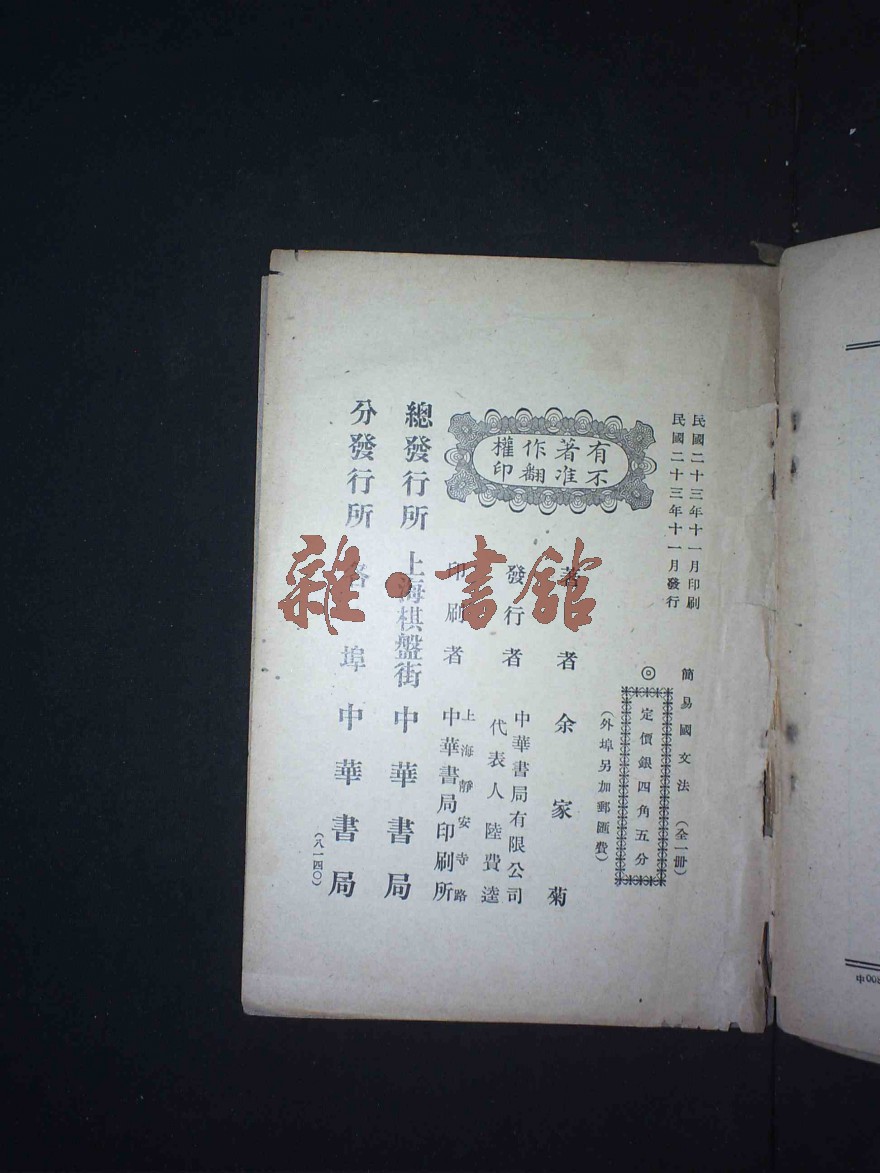 民國二十三年十一月印刷
民國二十三年十一月發行
簡易國文法（全一冊）
◎定價銀四角五分
（外埠另加郵匯費）
有著作權
不准翻印
著者 余家菊
發行者 中華書局有限公司
代表人 陸費逵
印刷者 上海靜安寺路
中華書局印刷所
總發行所 上海棋盤街 中華書局
分發行所 各埠 中華書局
（八一四〇）
雜·書館